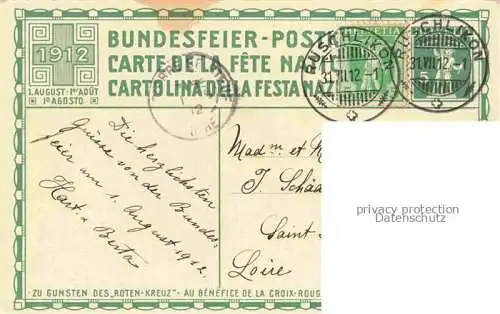 1912
1. AUGUST · 1ER AOÛT
1º AGOSTO
BUNDESFEIER-POST
CARTE DE LA FÊTE NA
CARTOLINA DELLA FESTA NA
RÜSCHLIKON
31.VII.12.-1
RÜSCHLIKON
31.VII.12.-1
5
12
Die herzlichsten
Grüsse von der Bundes-
feier am 1. August 1912.
Berta
Madm et M
J. Schä
Saint-
Loire
privacy protection
Datenschutz
ZU GUNSTEN DES „ROTEN-KREUZ" - AU BÉNÉFICE DE LA CROIX-ROUG